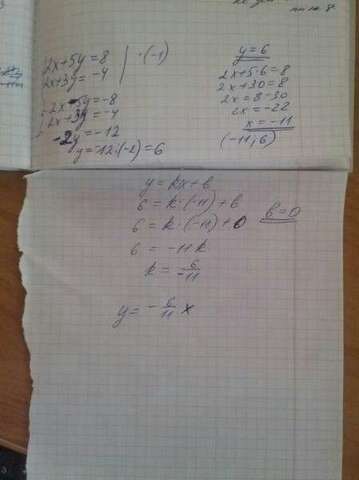 2x+5y=8 | ·(-1)
2x+3y=-4
-2x-5y=-8
2x+3y=-4
-2y=-12
y=-12·(-2)=6
y=6
2x+5·6=8
2x+30=8
2x=8-30
2x=-22
x=-11
(-11;6)
y=kx+b
6=k·(-11)+b
6=k·(-11)+0 b=0
6=-11k
k=6/-11
y=-6/11 x